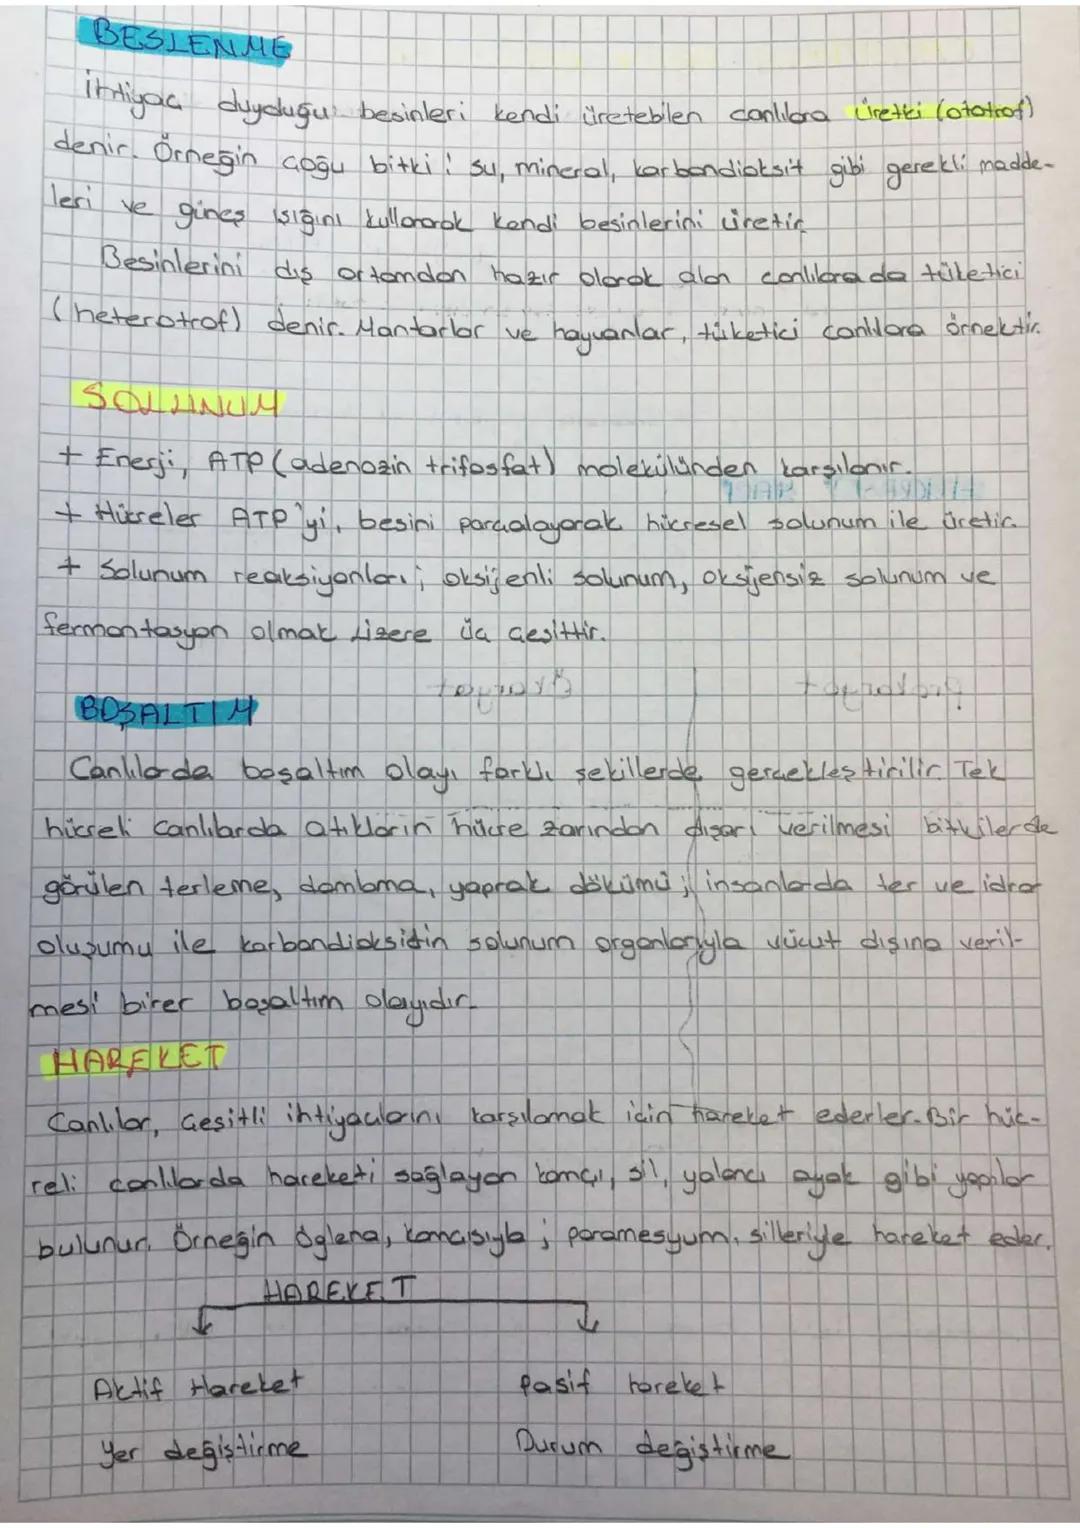 BESLENME
İhtiyaç duyduğu besinleri kendi üretebilen canlılara üretki (ototrof)
denir. Örneğin çoğu bitki ; su, mineral, karbondioksit gibi gerekli madde-
leri ve güneş ışığını kullanarak kendi besinlerini üretir
Besinlerini dış ortamdan hazır olarak alan canlılara da tüketici
(heterotrof) denir. Mantarlar ve hayvanlar, tüketici canlılara örnektir.
SOLUNUM
+ Enerji, ATP (adenozin trifosfat) molekülünden karşılanır.
+ Hücreler ATP'yi, besini parçalayarak hücresel solunum ile üretir.
+ Solunum reaksiyonları; oksijenli solunum, oksijensiz solunum ve
fermantasyon olmak üzere üç çeşittir.
BOŞALTIM
Canlılarda boşaltım olayı farklı şekillerde gerçekleştirilir. Tek
hücreli canlılarda atıkların hücre zarından dışarı verilmesi bitkilerde
görülen terleme, damlama, yaprak dökümü; insanlarda ter ve idrar
oluşumu ile karbondioksidin solunum organlarıyla vücut dışına veril-
mesi birer boşaltım olayıdır.
HAREKET
Canlılar, çeşitli ihtiyaçlarını karşılamak için hareket ederler. Bir hüc-
reli canlılarda hareketi sağlayan kamçı, sil, yalancı ayak gibi yapılar
bulunur. Örneğin öglena, kamçısıyla ; paramesyum, silleriyle hareket eder.
HAREKET
Aktif Hareket Pasif hareket
Yer değiştirme Durum değiştirme